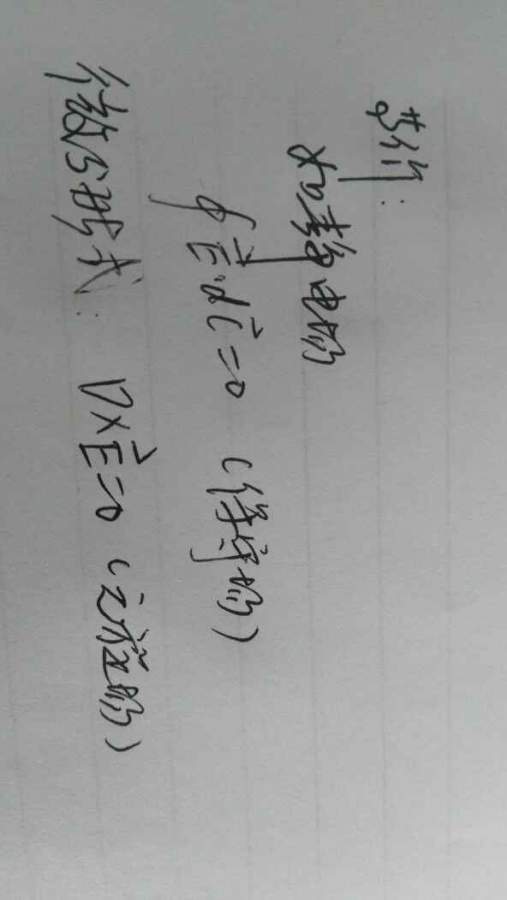 如静电场
∮E⃗·dl⃗=0 (保守场)
微分形式: ∇×E⃗=0 (无旋场)